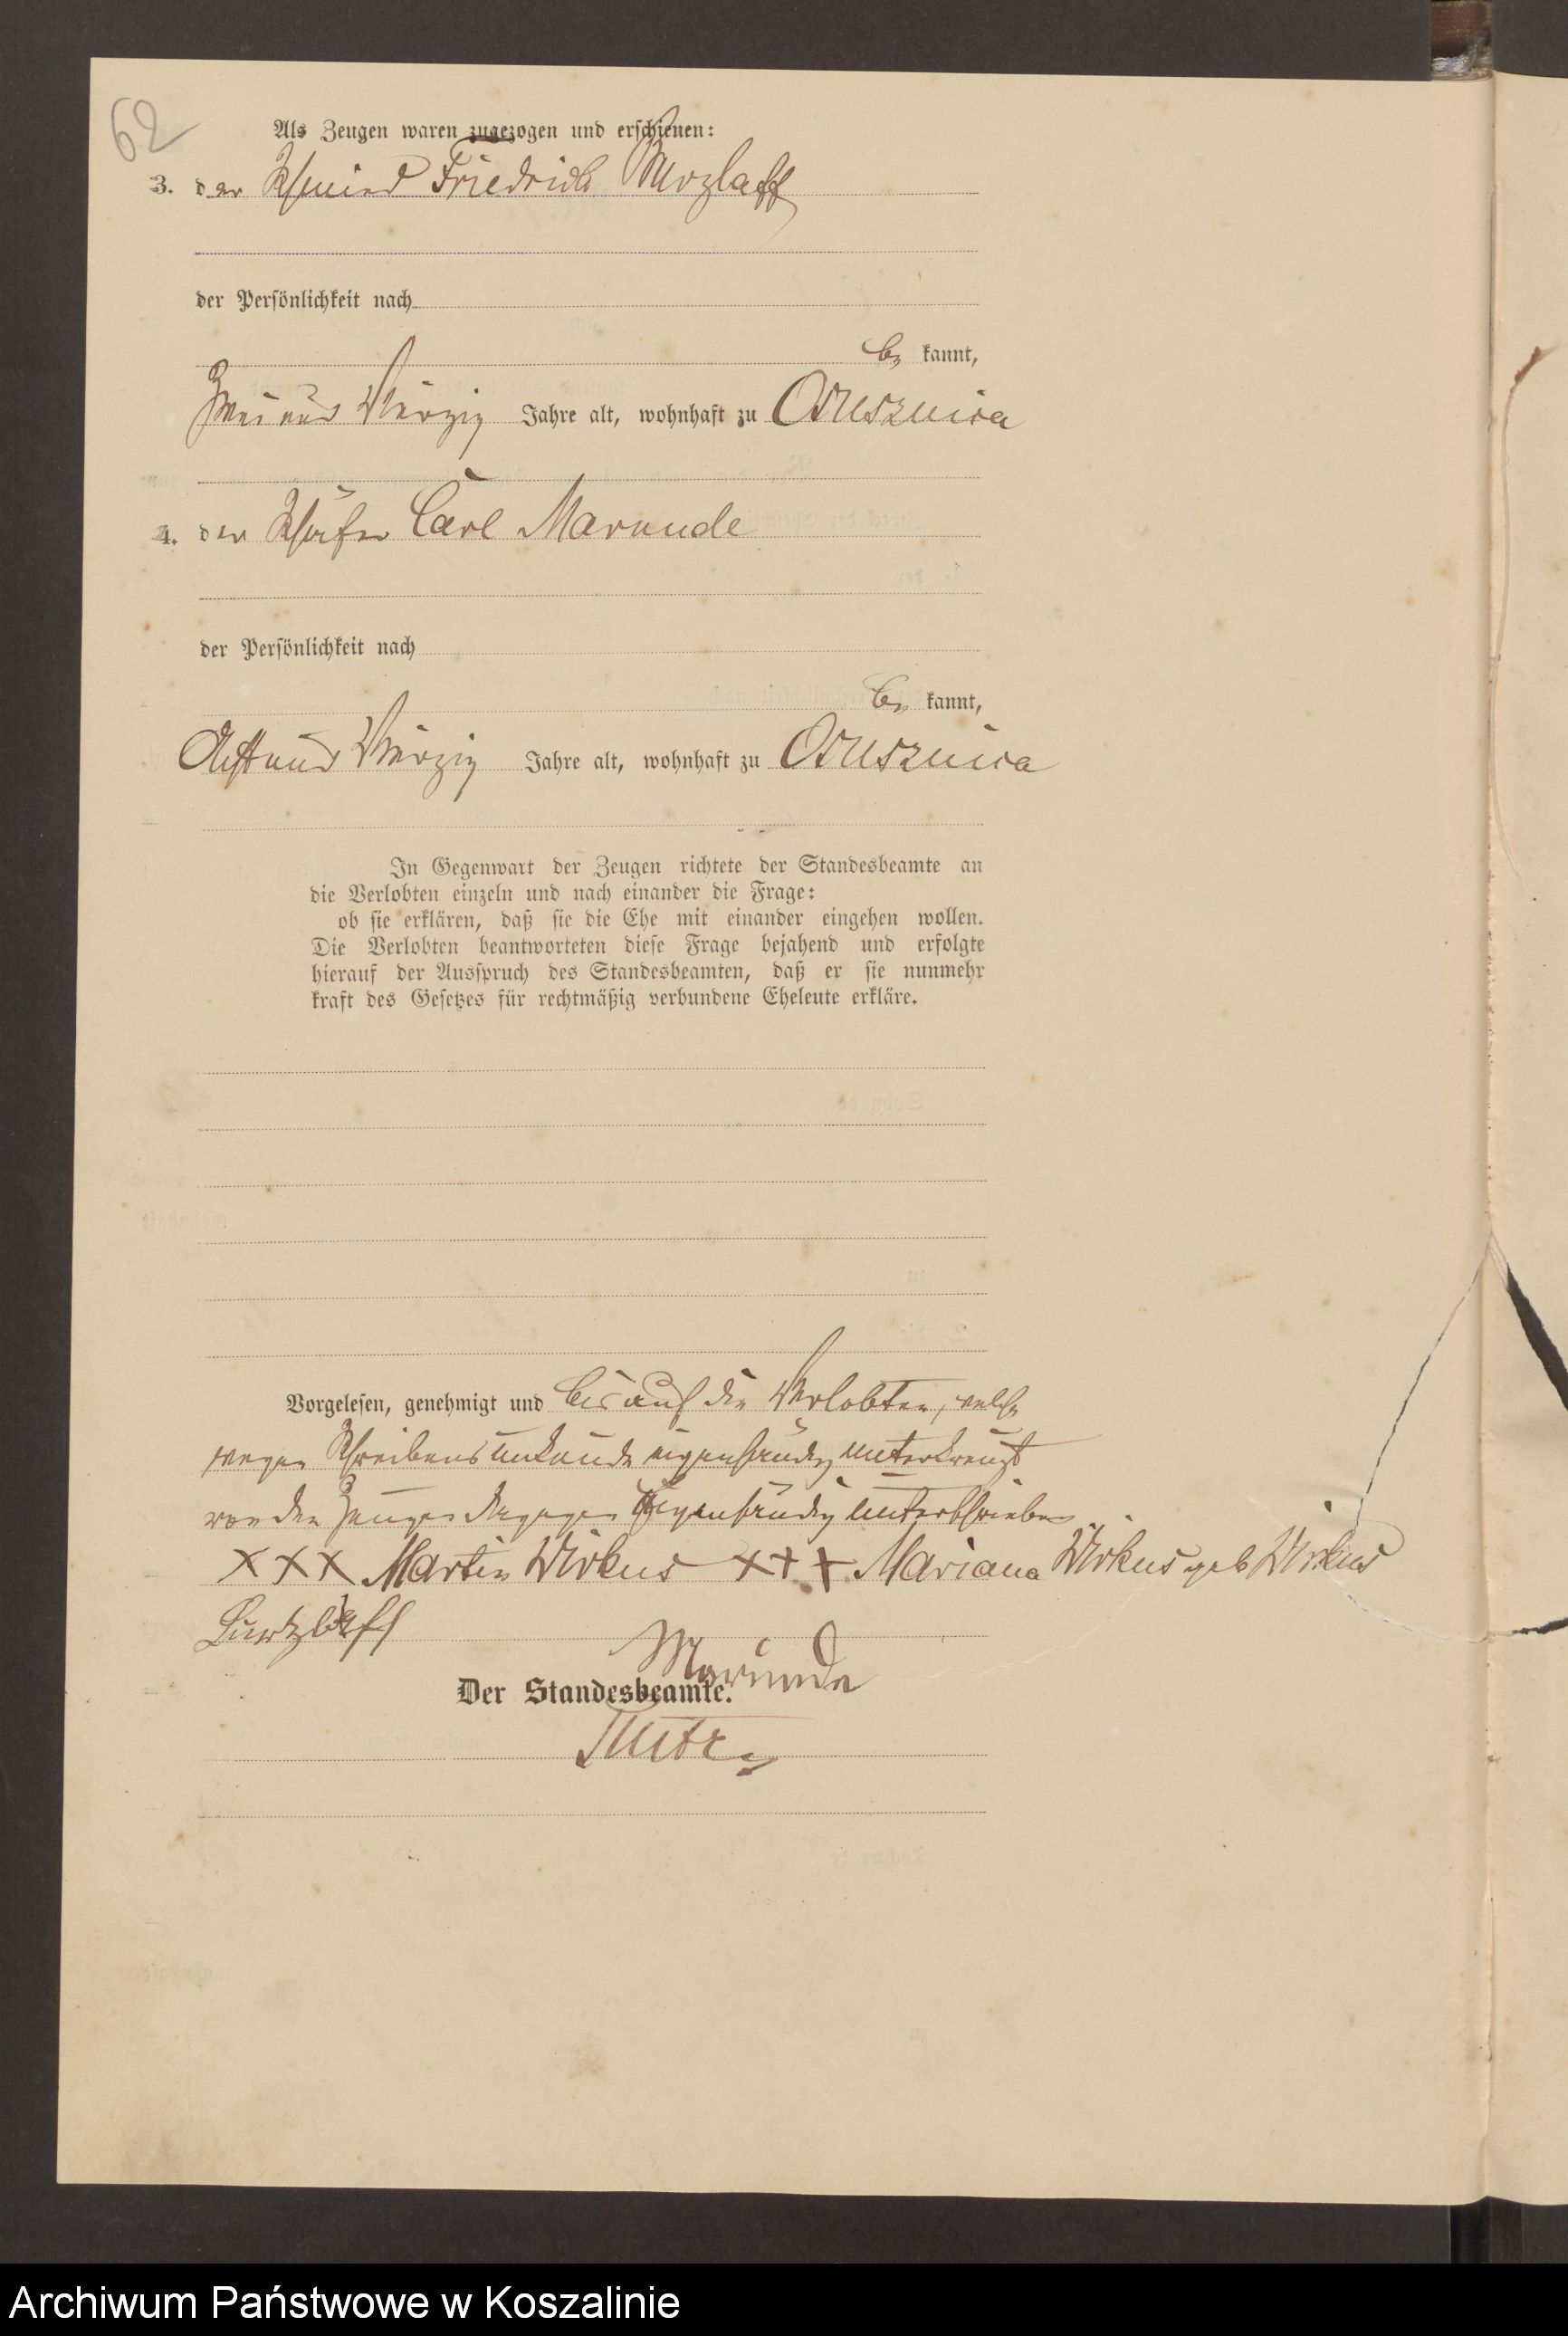 62
Als Zeugen waren zugezogen und erschienen:
3. der Schmied Friedrich
der Persönlichkeit nach
be kannt,
zwei und vierzig Jahre alt, wohnhaft zu Ossusznica
4. der Schäfer Carl Marunde
der Persönlichkeit nach
be kannt,
Acht und vierzig Jahre alt, wohnhaft zu Ossusznica
In Gegenwart der Zeugen richtete der Standesbeamte an
die Verlobten einzeln und nach einander die Frage:
ob sie erklären, daß sie die Ehe mit einander eingehen wollen.
Die Verlobten beantworteten diese Frage bejahend und erfolgte
hierauf der Ausspruch des Standesbeamten, daß er sie nunmehr
kraft des Gesetzes für rechtmäßig verbundene Eheleute erkläre.
Vorgelesen, genehmigt und bis auf die Verlobten, welche
wegen Schreibensunkunde eigenhändig unterkreuzt
von den Zeugen dagegen eigenhändig unterschrieben
XXX Martin Wirkus +++ Mariana Wirkus geb Wirkus
Marunde
Der Standesbeamte.
Archiwum Państwowe w Koszalinie